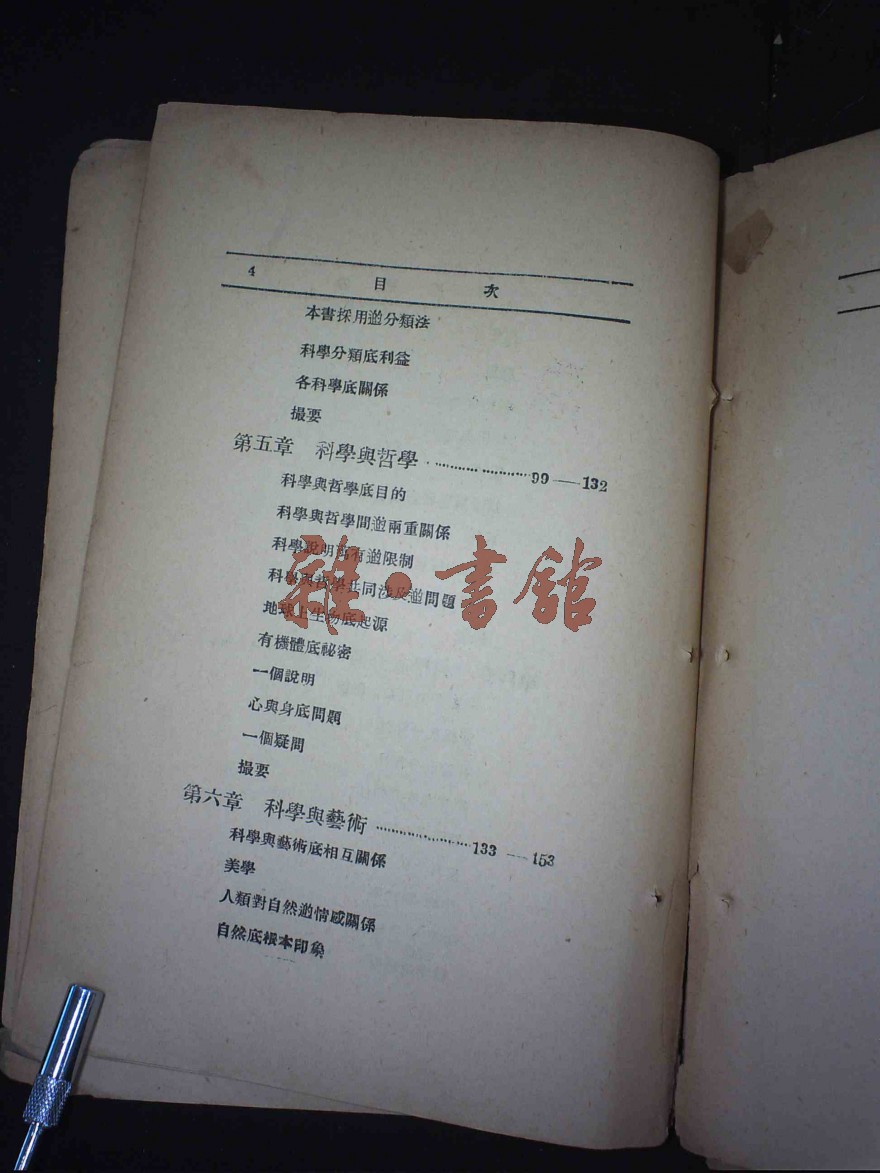 4 目 次
本書採用分類法
科學分類底利益
各科學底關係
撮要
第五章 科學與哲學 ·················99——132
科學與哲學底目的
科學與哲學間兩重關係
科學說明所有限制
科學與哲學共同涉及問題
地球上生物底起源
有機體底祕密
一個說明
心與身底問題
一個疑問
撮要
第六章 科學與藝術 ·················133——153
科學與藝術底相互關係
美學
人類對自然情感關係
自然底根本印象
雜·書館